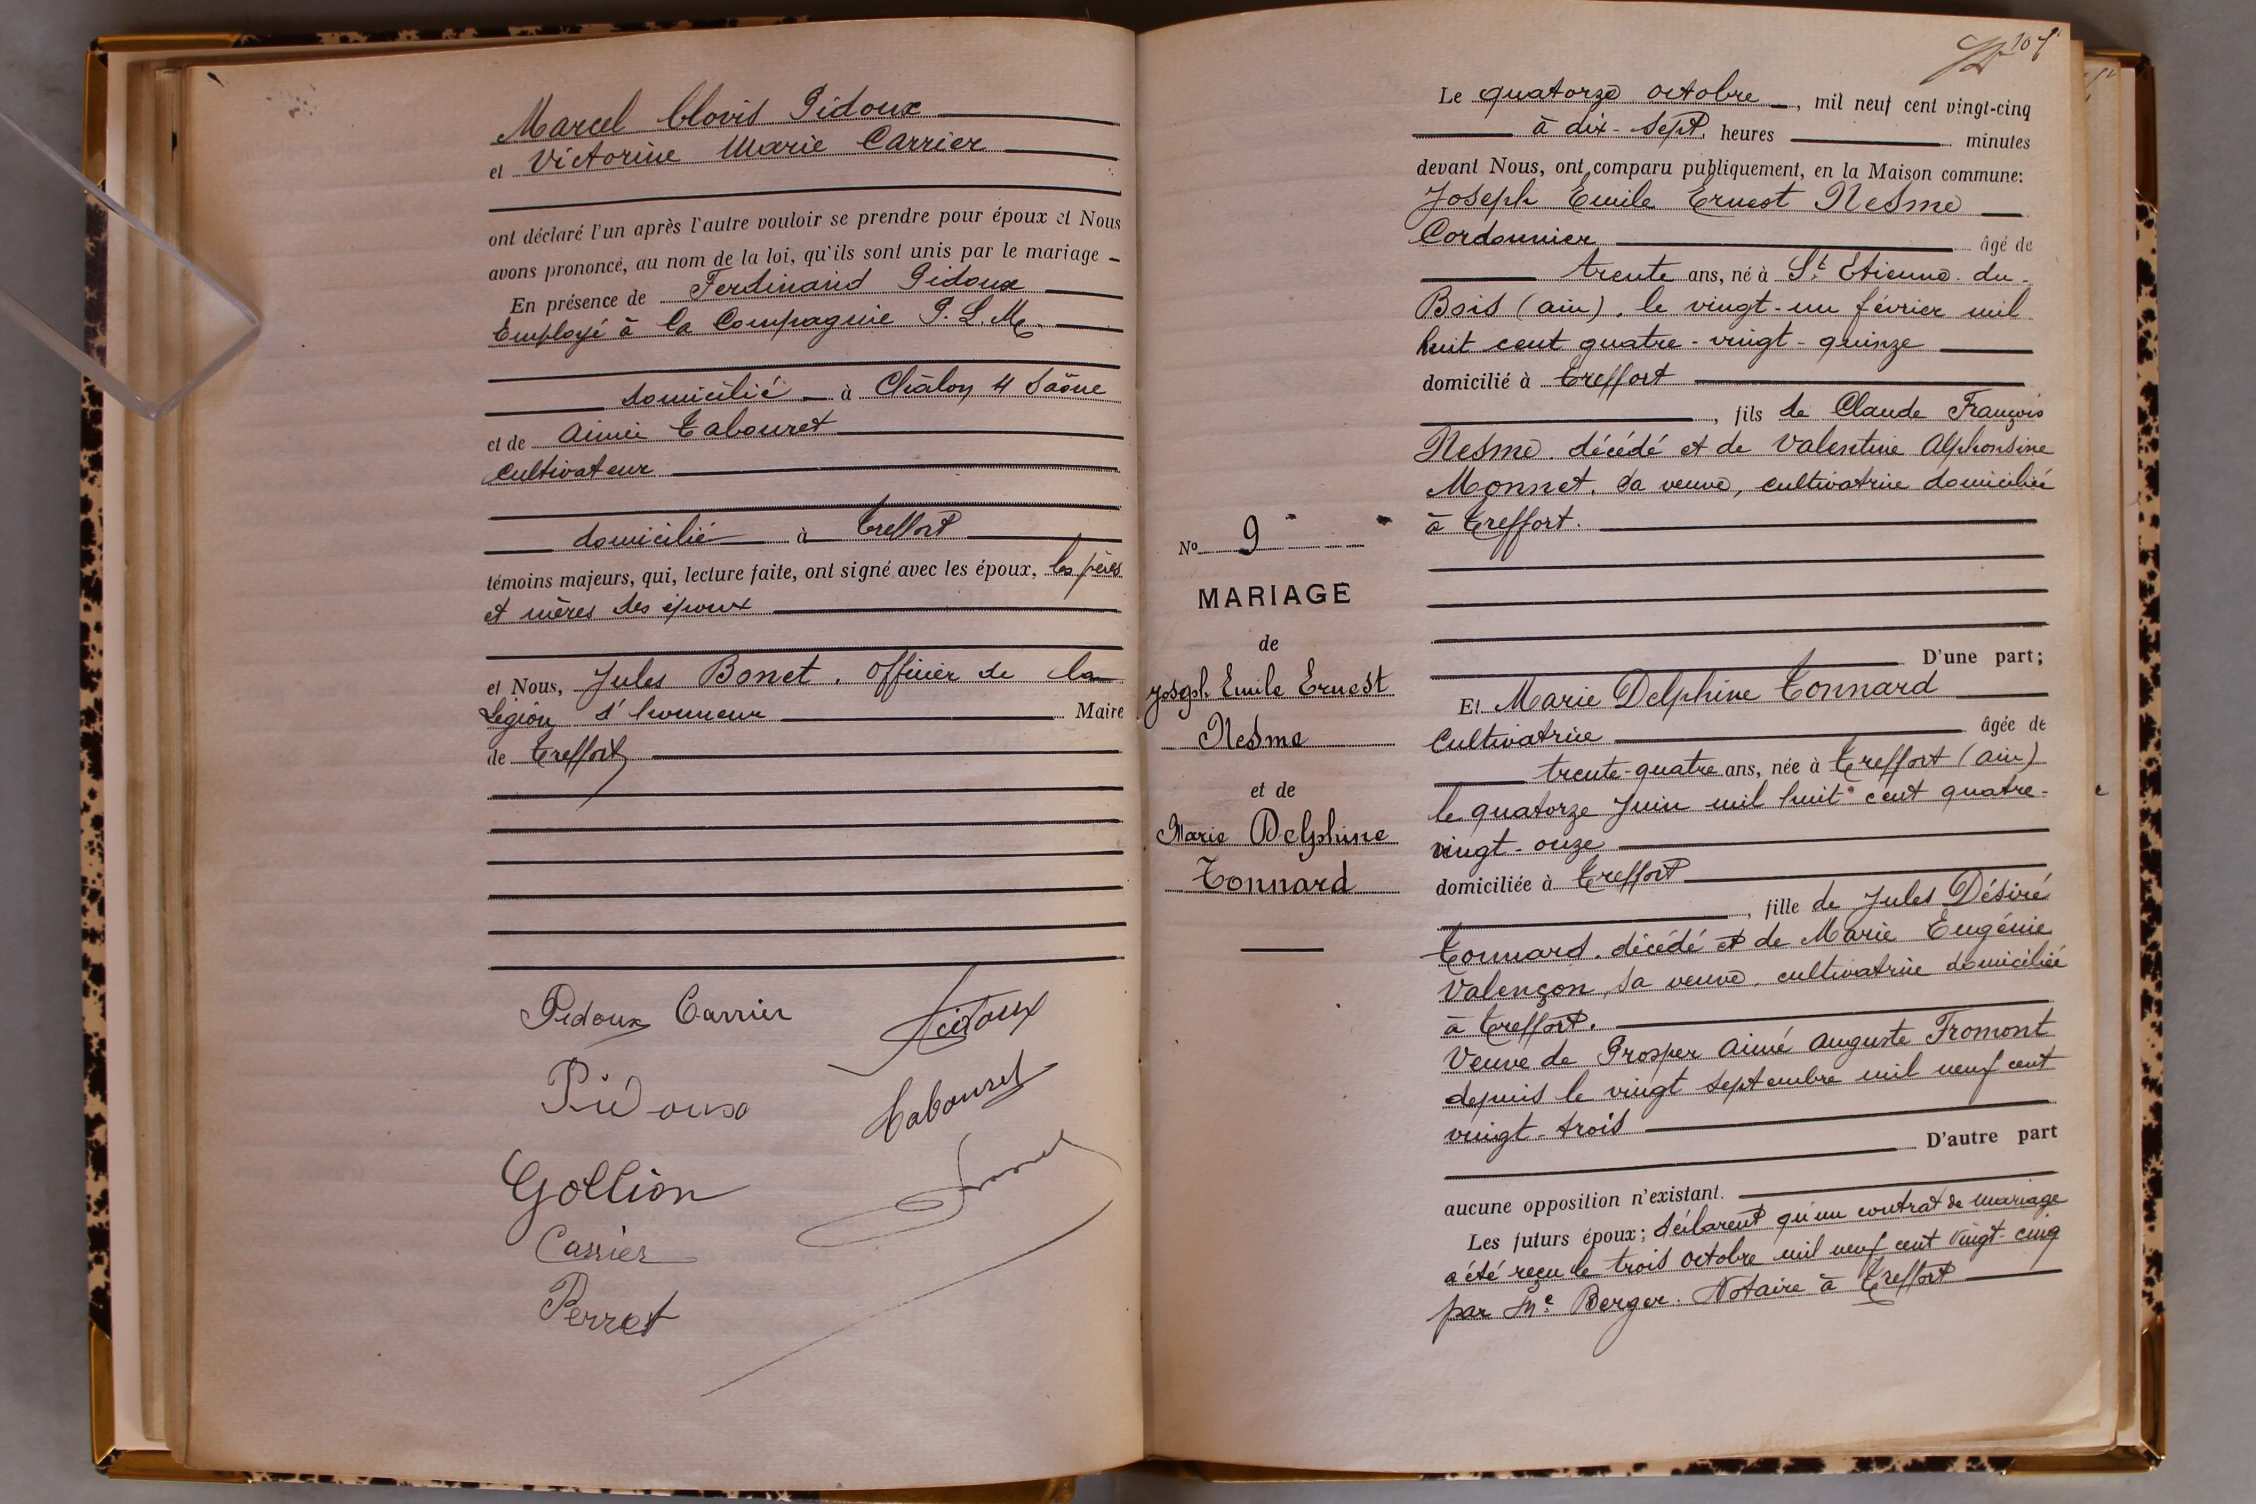 Marcel Clovis Pidoux
et Victorine Marie Carrier
ont déclaré l'un après l'autre vouloir se prendre pour époux et Nous
avons prononcé, au nom de la loi, qu'ils sont unis par le mariage
En présence de Ferdinand Pidoux
Employé à la Compagnie P. L. M.
domicilié à Châlon s/ Saône
et de Aimé Tabouret
cultivateur
domicilié à Treffort
témoins majeurs, qui, lecture faite, ont signé avec les époux, les pères
et mères des époux
et Nous, Jules Bonet, officier de la
Légion d'honneur Maire
de Treffort
Pidoux Carrier
Pidoux
Pidoux
Tabouret
Gollion
Carrier
Perret
107
Le quatorze octobre, mil neuf cent vingt-cinq
à dix-sept heures minutes
devant Nous, ont comparu publiquement, en la Maison commune:
Joseph Emile Ernest Nesme
Cordonnier âgé de
trente ans, né à St Etienne du
Bois (ain), le vingt-un février mil
huit cent quatre-vingt-quinze
domicilié à Treffort
, fils de Claude François
Nesme décédé et de Valentine Alphonsine
Monnet, sa veuve, cultivatrice domiciliée
à Treffort.
D'une part;
No 9
MARIAGE
de
Joseph Emile Ernest
Nesme
et de
Marie Delphine
Tonnard
Et Marie Delphine Tonnard
Cultivatrice âgée de
trente-quatre ans, née à Treffort (ain)
le quatorze Juin mil huit cent quatre-
vingt-onze
domiciliée à Treffort
, fille de Jules Désiré
Tonnard, décédé et de Marie Eugénie
Valençon, sa veuve, cultivatrice domiciliée
à Treffort.
Veuve de Prosper Aimé Auguste Fromont
depuis le vingt septembre mil neuf cent
vingt-trois
D'autre part
aucune opposition n'existant.
Les futurs époux; déclarent qu'un contrat de mariage
a été reçu le trois octobre mil neuf cent vingt-cinq
par Me Berger. Notaire à Treffort